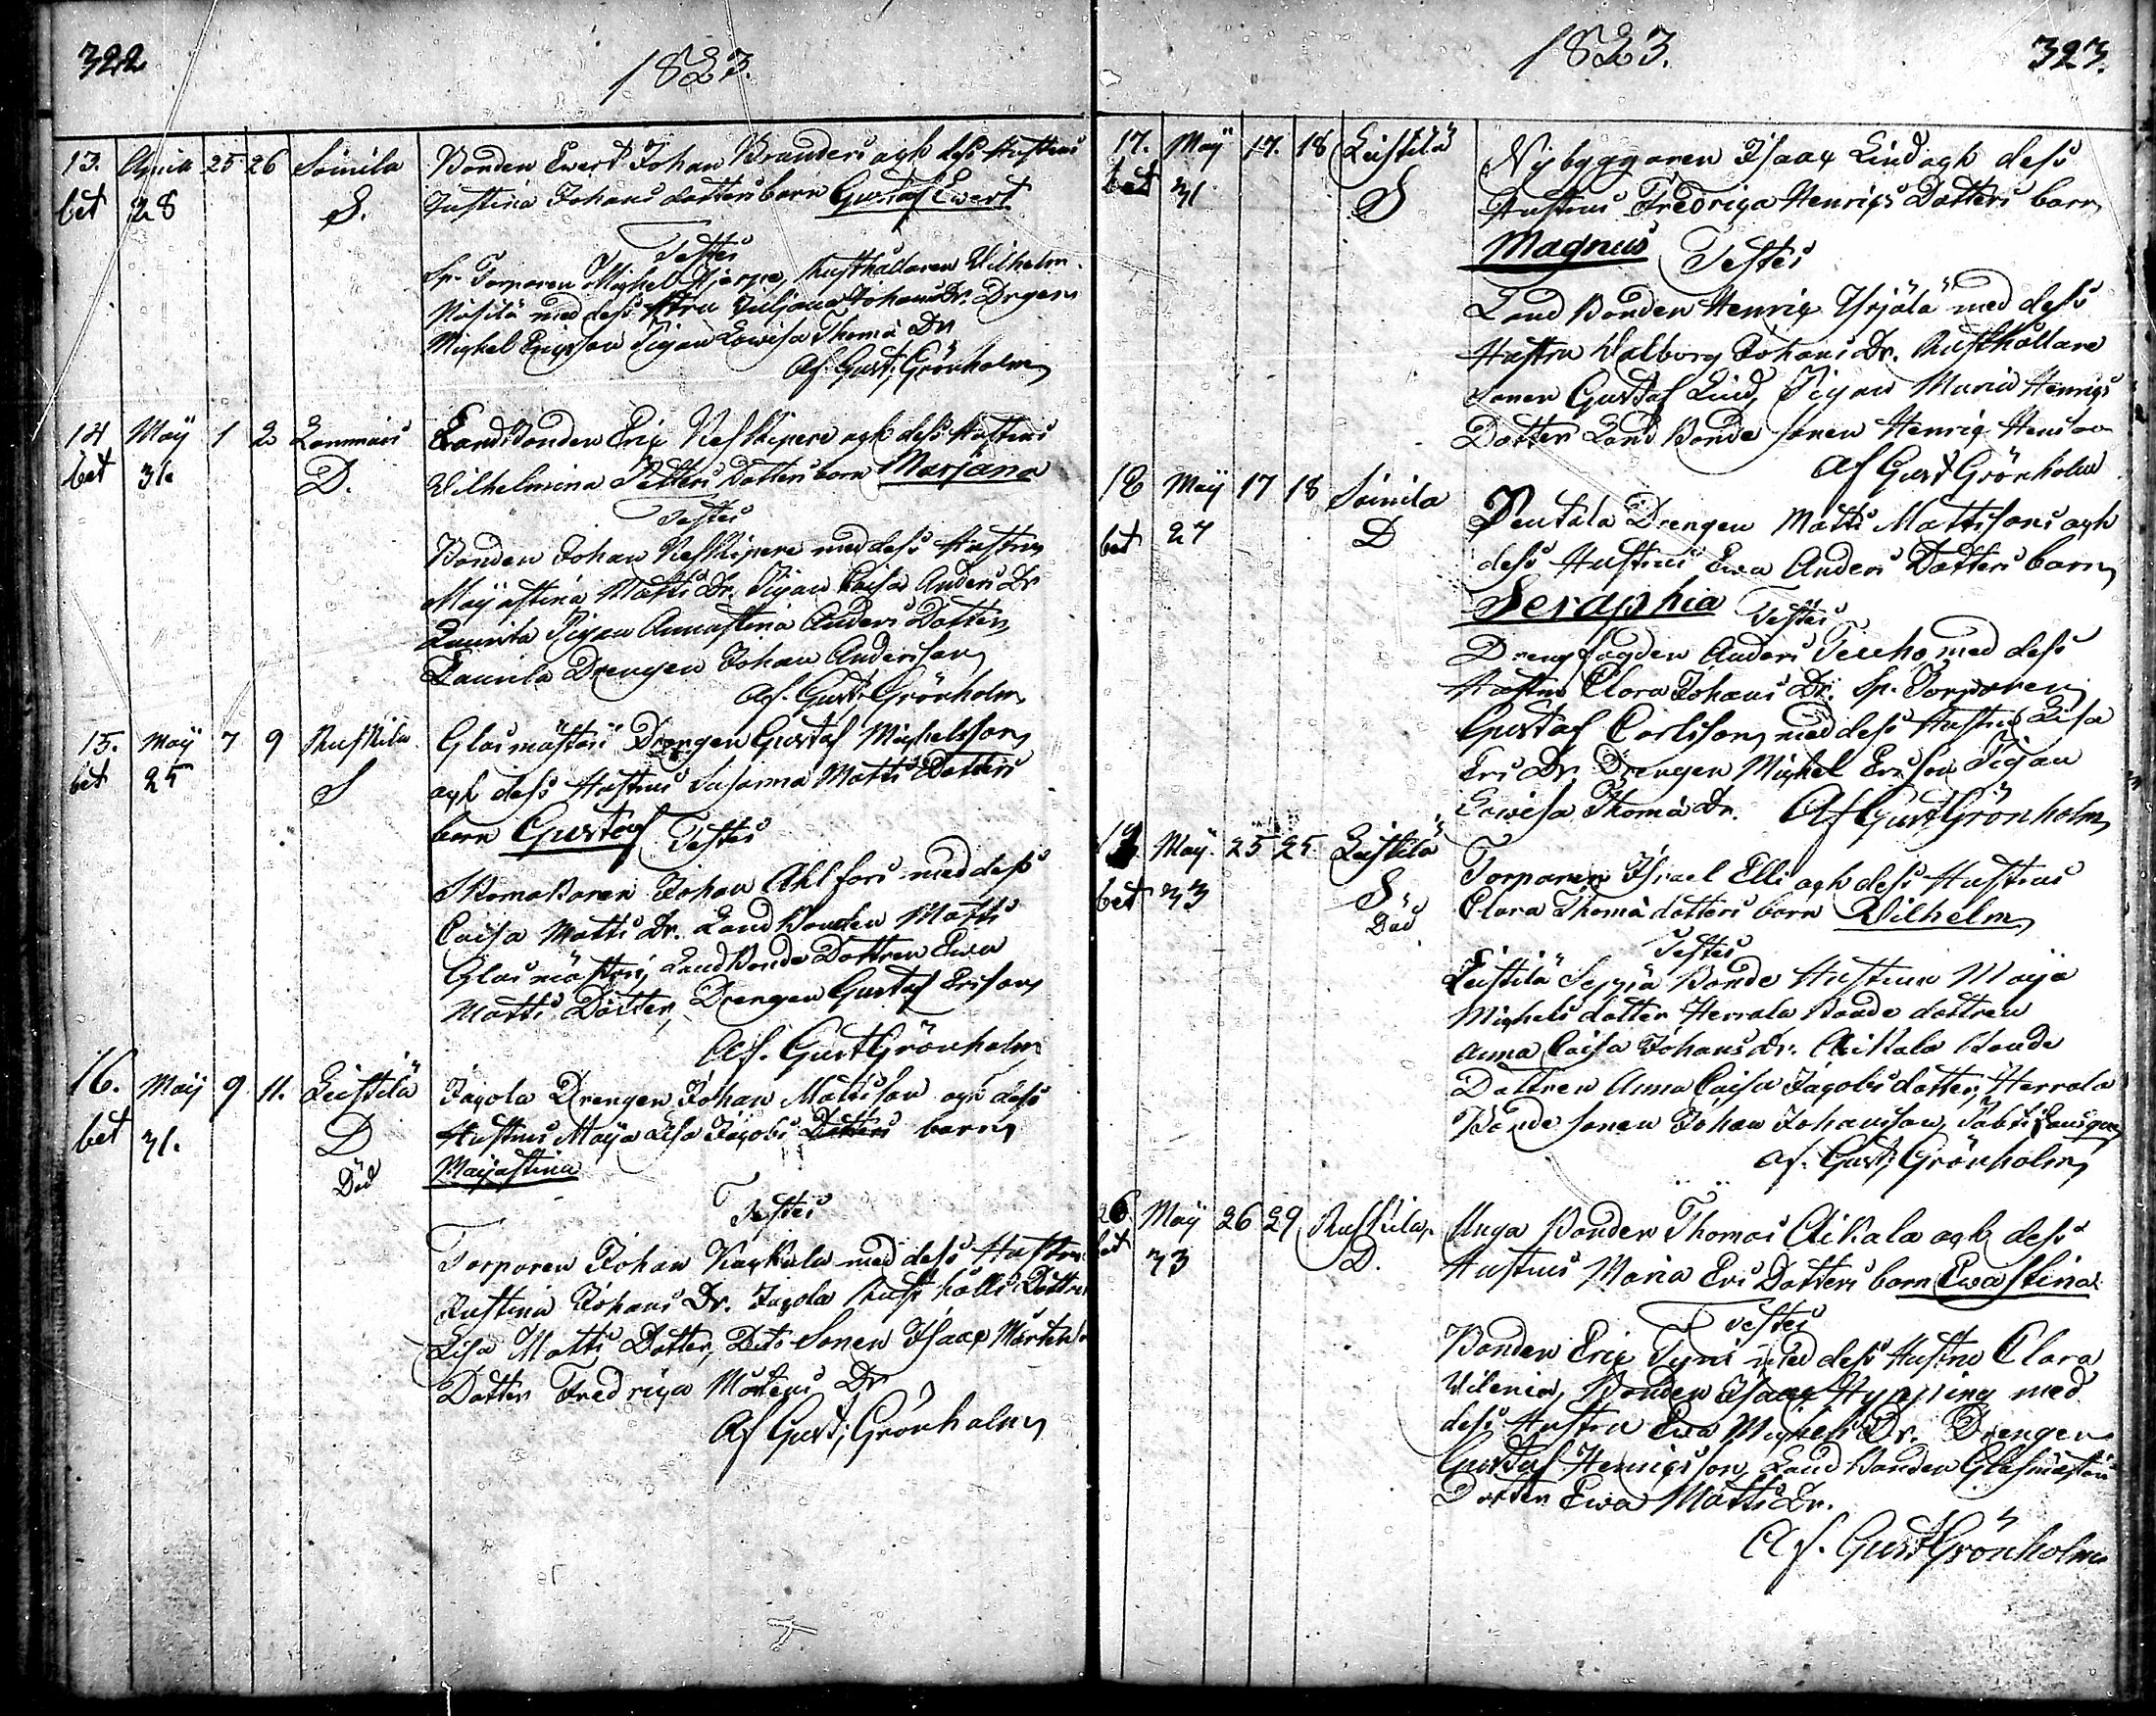 322
1823.
13. Aprill 25 26 Soinila Bonden Ewert Johan Branders ock dess Hustrus
bet 28 S. Justina Johans dotters barn Gustaf Ewert
Testes
Sp. Torparen Mickel Hjerpe, Rusthållaren Wilhelm
med dess Hstru Juljana Johans Dr. Drgen
Mickel Ericsson Pigan Lowisa Thoma Dr
Af. Gust; Grönholm
14 May 1 2 Lammais Landbonden Eric Neskipere ock dess Hustrus
bet 31. D. Wilhelmina Petters Dotters barn Marjana
Testes
Bonden Johan Neskipere med dess Hustru
Maijastina Matts Dr. Pigan Caisa Anders Dr
Launila Pigan Annastina Anders Dotter
Launila Drengen Johan Andersson
Af. Gust; Grönholm
15. May 7 9 Ruskila Glasmästari Drengen Gustaf Mickelsson
bet 25 S ock dess Hustrus Susanna Matts Dotters
barn Gustaf Testes
Skomakaren Johan Ahlfors med dess
Caisa Matts Dr. Landbonden Matts
Glasmästari, Landbonde Dottren Ewa
Matts Dotter, Drengen Gustaf Ersson
Af. Gust Grönholm
16. May 9 11. Leistilä Jacola Drengen Johan Mattsson ock dess
bet 31. D Hustrus Maija Lisa Jacobs Dotters barn
Död Maijastina
Testes
Torparen Johan Kaukula med dess Hustru
Justina Johans Dr. Jacola Rusthålls Dottren
Lisa Matts Dotter, Dito Sonen Isaac Mårtens
Dotter Fredrica Mårtens Dr
Af Gust; Grönholm
1823.
323.
17. May 17. 18 Leistilä Nybyggaren Isaac Lind ock dess
bet 31 S Hustrus Fredrica Henrics Dotters barn
Magnus Testes
Land Bonden Henric Yrjälä med dess
Hustru Walborg Johans Dr. Rusthållare
sonen Gustaf Lind, Pigan Maria Henrics
Dotter Land Bonde sonen Henric Henson
Af Gust Grönholm
18 May 17 18 Soinila Pentala Drengen Matts Mattssons ock
bet 27 D dess Hustrus Ewa Anders Dotters barn
Seraphia Testes
Dreng fogden Anders Tercho med dess
Hustru Clara Johans Dr. Sp. Torparen
Gustaf Carlsson med dess Hustru Lisa
Ers Dr. Drengen Mickel Ersson Pigan
Lowisa Thoma Dr. Af Gust Grönholm
19 May 25 25 Leistilä Torparen Israel Elli ock dess Hustrus
bet 33 S. Clara Thoma dotters barn Wilhelm
Död
Testes
Leistilä Seppä Bonde Hustrun Maija
Mickels dotter Herrala Bonde dottren
Anna Caisa Johans Dr. Aikala Bonde
Dottren Anna Caisa Jacobs dotter, Herrala
Bonde sonen Johan Johansson,
Af. Gust; Grönholm
20 May 26 29 Ruskila Unga Bonden Thomas Aikala ock dess
bet 33 D. Hustrus Maria Ers Dotters barn Ewastina
Testes
Bonden Eric Tyni med dess Hustru Clara
Wilenia, Bonden Isaac Hypping med
dess Hustru Ewa Mickels Dr. Drengen
Gustaf Henricsson, Land Bonden Glasmästari
Dotter Ewa Matts Dr.
Af. Gust Grönholm